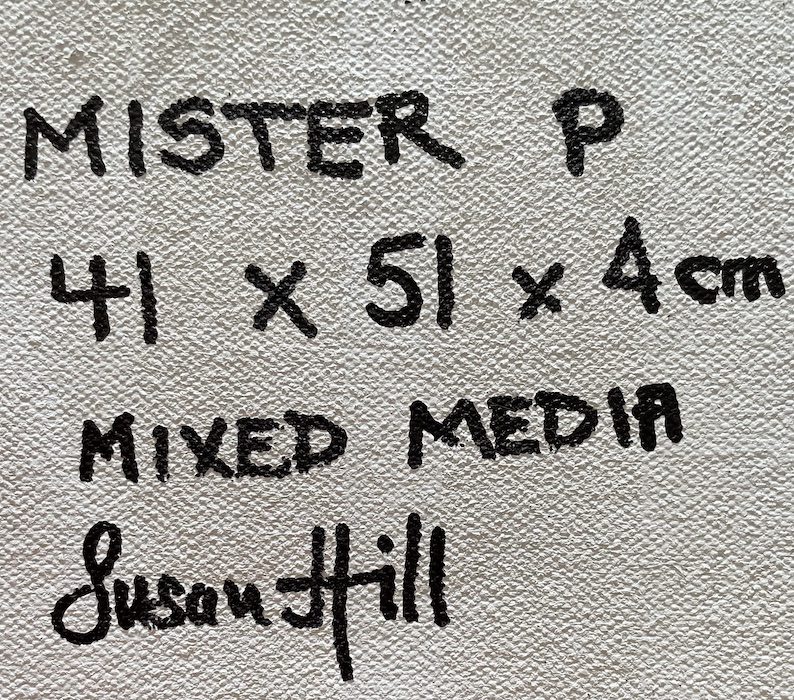 MISTER P
41 x 51 x 4 cm
MIXED MEDIA
Susan Hill